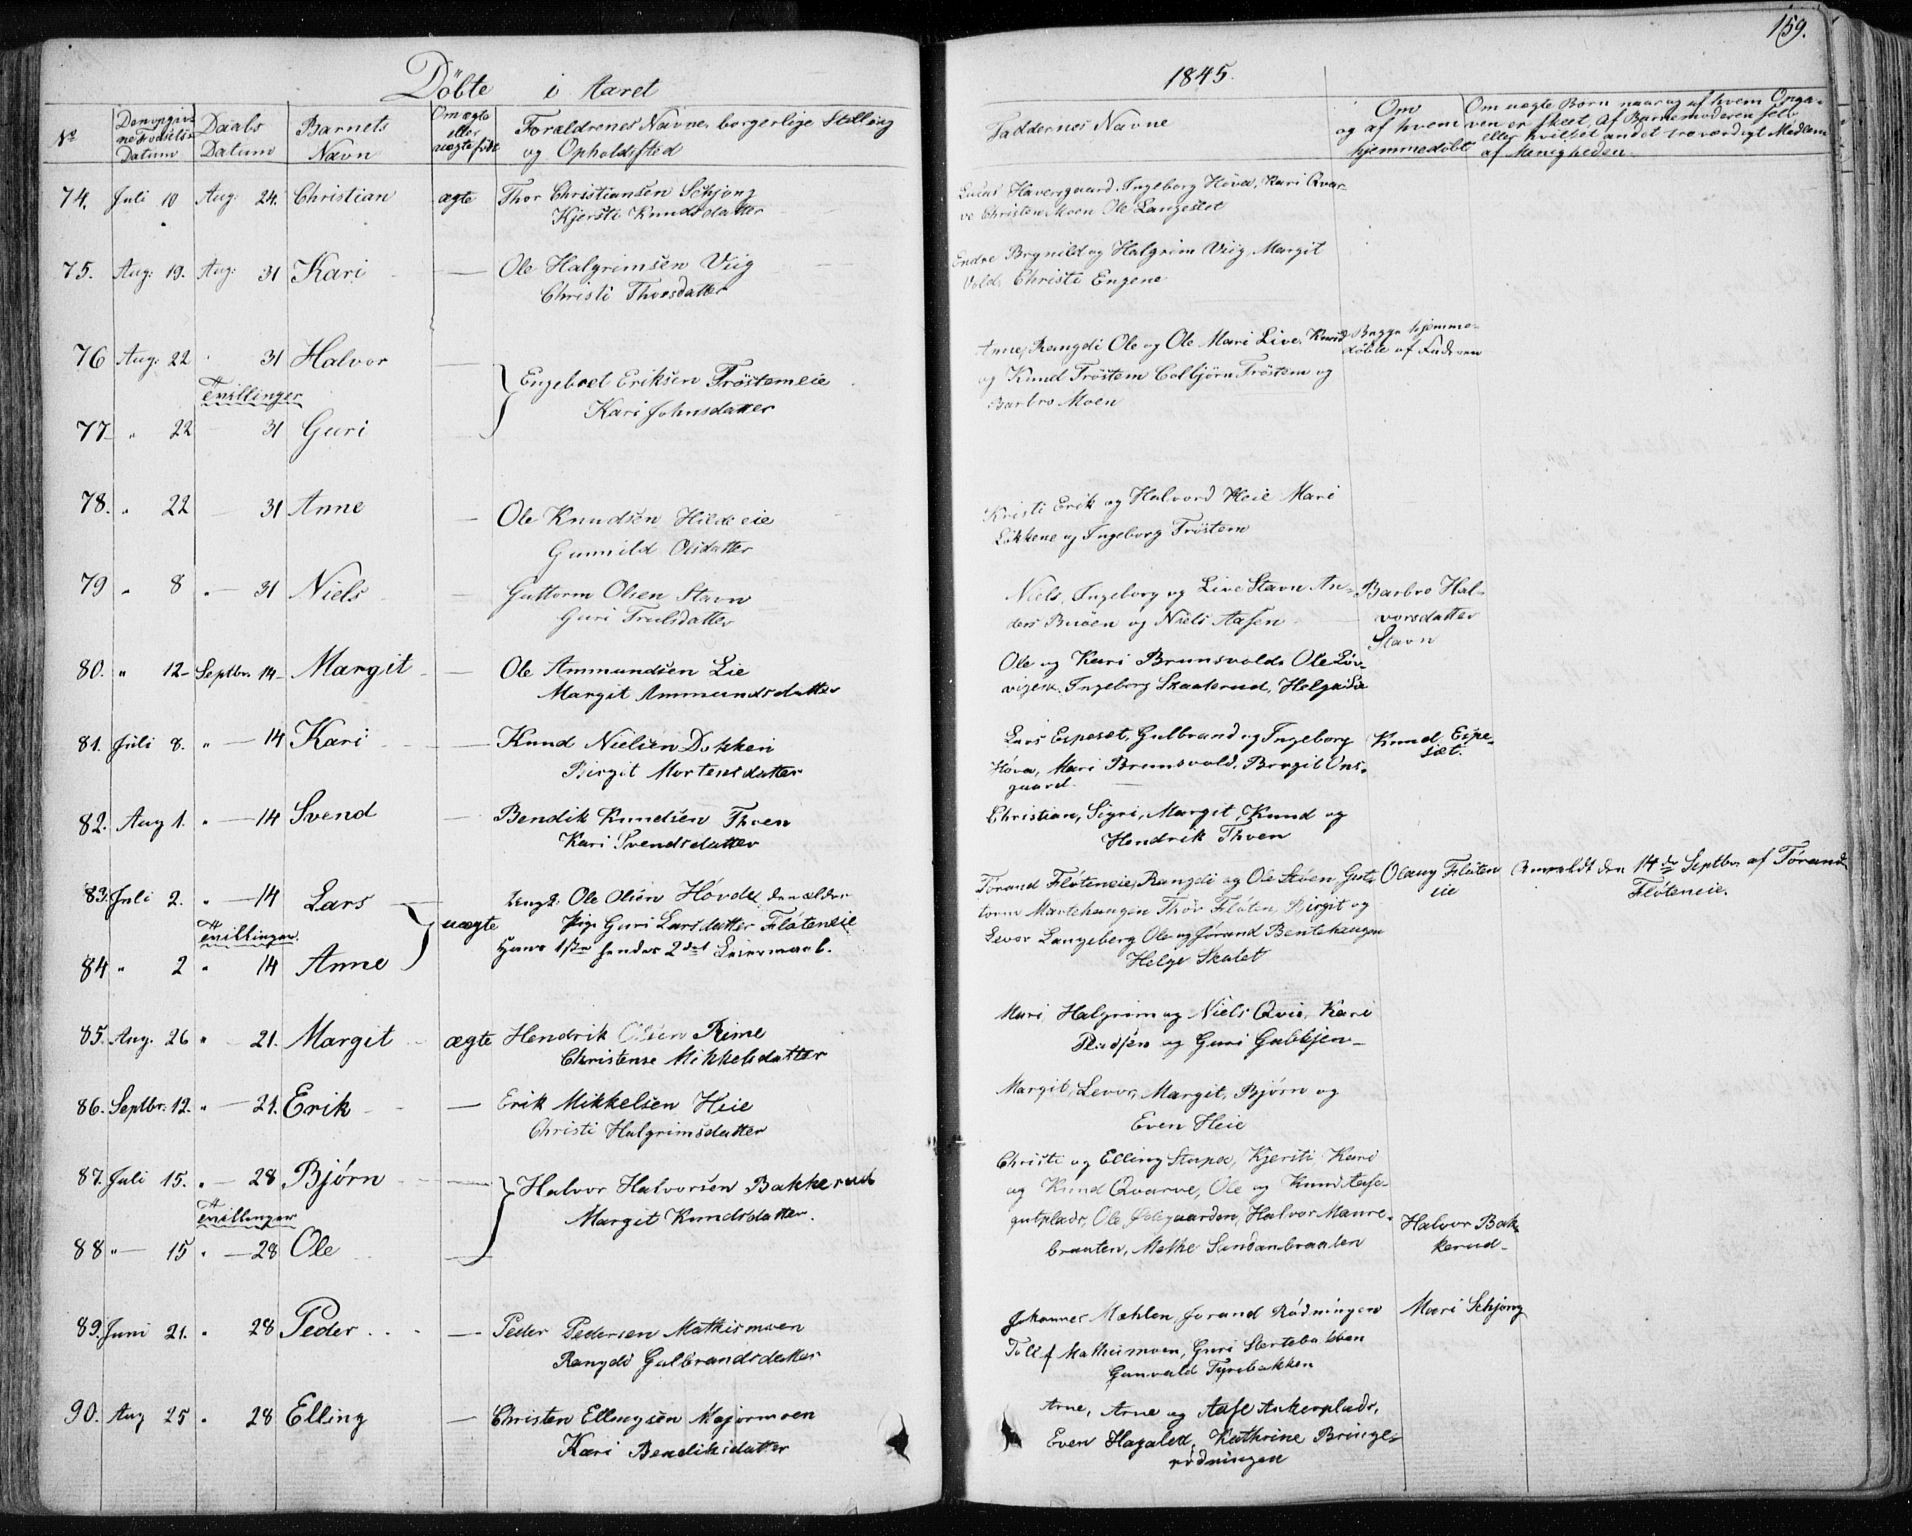 Döbte i Aaret
1845.
159.
No
Den opgiv-
ne Födsels-
Datum
Daabs
Datum
Barnets
Navn
Om ægte
eller
uægte født
Forældrenes Navne, borgerlige Stilling
og Opholdssted
Faddernes Navne
Om
og af hvem
hjemmedøbt
Om uægte Børn naar og af hvem Opga-
ven er skeet, af Barnemoderen selv
eller hvilket andet troværdigt Medlem
af Menigheden.
74. Juli 10 Aug: 24. Christian ægte Thor Christiansen Schjong
Kjersti Knudsdatter
Lucas Haversgaard, Ingeborg Hova, Kari Qvar-
ve Christen Moen Ole Langeslet
75. Aug: 19. Aug: 31 Kari — Ole Halgrimsen Viig
Christi Thorsdatter
Endre Brynild og Halgrim Viig Margit
Vold, Christi Engene
76 Aug: 22 31 Halvor —
Tvillinger
Engebret Eriksen Tröstemeie
Kari Johnsdatter
77 " 22 31 Guri
Anne, Rangdi Ole og Ole Mari Live, Knud
og Knud Tröstem Colbjörn Tröstem og
Barbro Moen
Begge hjemme-
döbte af Faderen
78. " 22 31 Anne — Ole Knudsen Hilde eie
Gunnild Olsdatter
Kristi Erik og Halvord Heie Mari
Lökkene og Ingeborg Tröstem
79 " 8 " — 31 Niels — Guttorm Olsen Stavn
Guri Trulsdatter
Niels, Ingeborg og Live Stavn An-
ders Buöen og Niels Aasen
Barbro Hal-
vorsdatter
Stavn
80. " 12 Septbr. 14 Margit — Ole Ammundsen Lie
Margit Ammundsdatter
Ole og Kari Brunsvold, Ole Lö-
vigen. Ingeborg Skaalerud, Helga Lie
81. Juli 8. " — 14 Kari — Knud Nielsen Dokken
Birgit Mortensdatter
Lars Espeset, Gulbrand og Ingeborg
Höva, Mari Brunsvold. Birgit Öns-
gaard.
Knud Espe-
sæt.
82. Aug 1. " — 14 Svend — Bendik Knudsen Thoen
Kari Svendsdatter
Christian, Sigri, Margit, Knud og
Hendrik Thoen
83. Juli 2. " — 14 Lars —
Tvillinger.
84 " 2 " 14 Anne
uægte
Ungk. Ole Olsen Hövde den ældre
Pige Guri Larsdatter Flöteneie
Hans 1ste hendes 2det Leiermaal.
Torand Flöteneie, Rangdi og Ole Stöen, Gut-
torm Martehaugen Thor Flöten, Birgit og
Levor Langeberg Ole og Jörand Bentehaugen
Helge Skalet
Olaug Flöten
eie
Anmeldt den 14de Septbr. af Törand
Flöteneie.
85. Aug. 26 " 21. Margit ægte Hendrik Olsen Rime
Christense Mikkelsdatter
Mari, Halgrim og Niels Qvie, Kari
og Guri Gubhjen
86. Septbr. 12. " — 21. Erik — Erik Mikkelsen Heie
Christi Halgrimsdatter
Margit, Levor, Margit, Björn og
Even Heie
87. Juli 15. " — 28 Björn —
Tvillinger
88 " — 15 " — 28 Ole —
Halvor Halvorsen Bakkerud
Margit Knudsdatter.
Christi og Elling Stapa, Kjersti Kari
og Knud Qvarve, Ole og Knud Aase-
gutplads, Ole Ödegaarden, Halvor Maure-
braaten, Mathe Sundanbraaten
Halvor Bak-
kerud
89. Juni 21. " 28 Peder — Peder Pedersen Mathismoen
Rangdi Gulbrandsdatter
Johannes Mæhlen, Jorand Rödningen
Tollef Mathismoen, Guri Stertebakken
Gunvald Tyrebakken
Mari Schjong
90. Aug 25 " 28 Elling — Christen Ellingsen Majormoen
Kari Bendiksdatter
Arne, Arne og Aase Ankerplads,
Even Hagaled, Kathrine Bringe-
rödningen